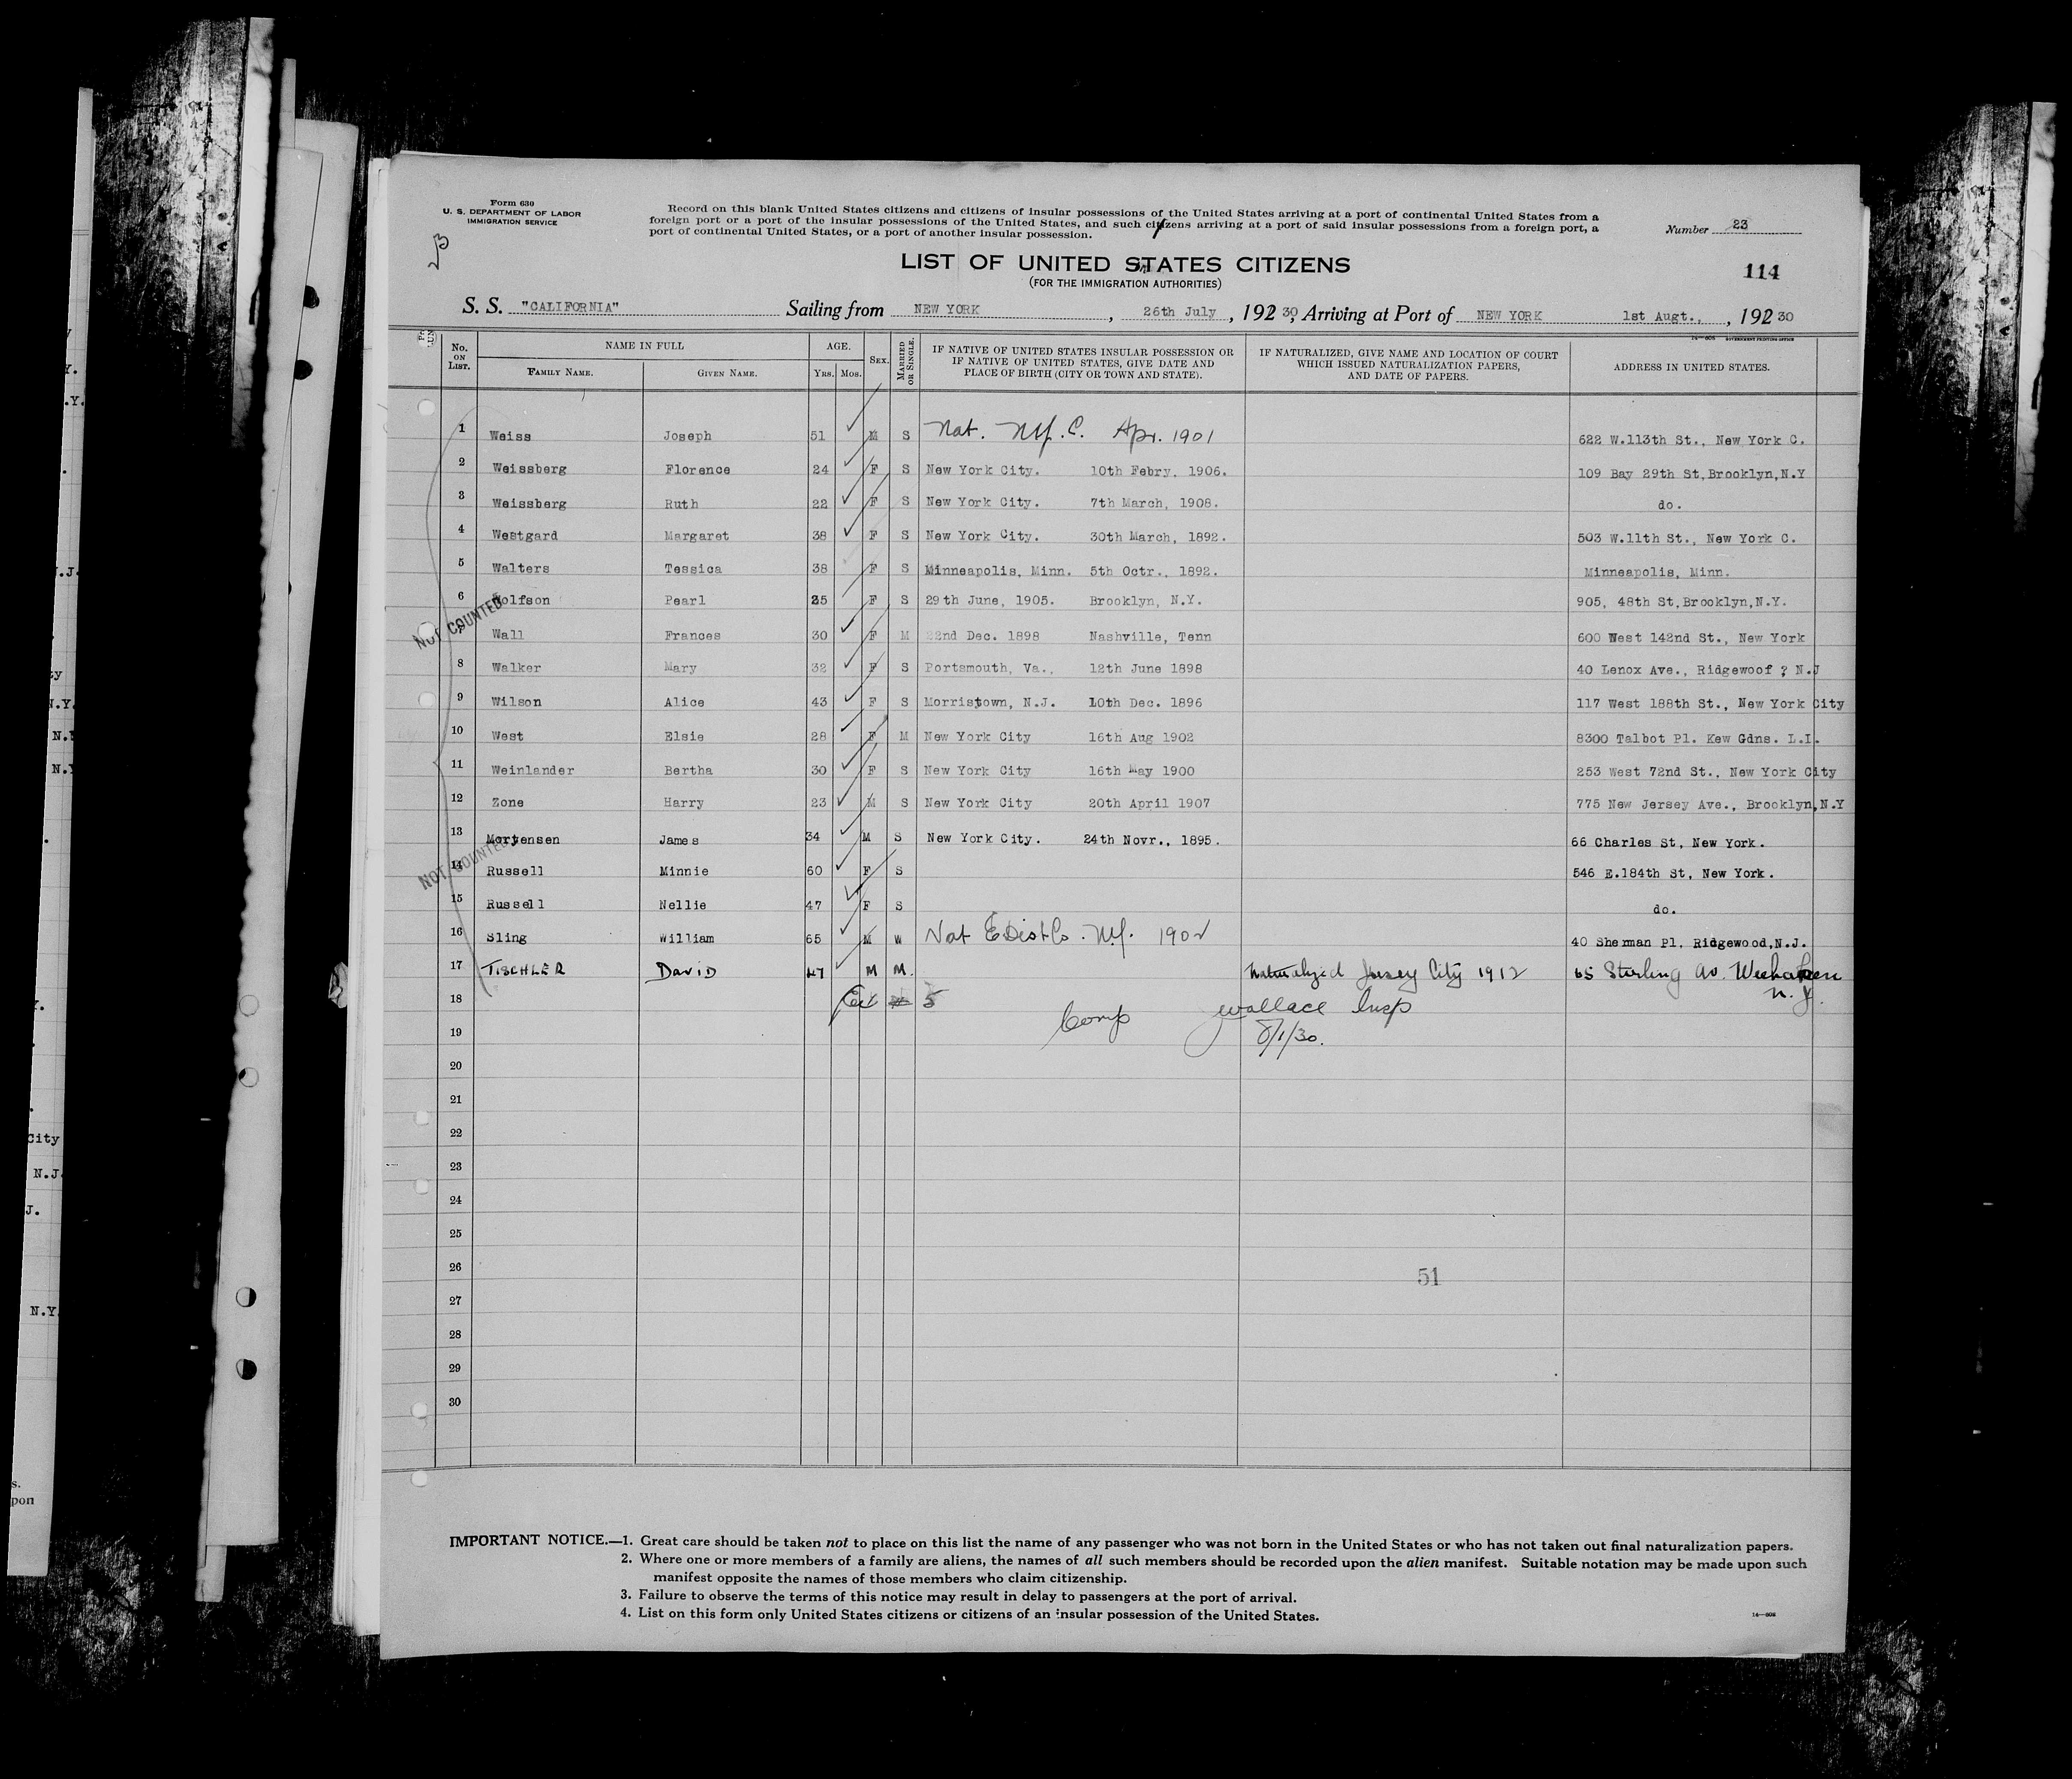 Form 630
U. S. DEPARTMENT OF LABOR
IMMIGRATION SERVICE
Record on this blank United States citizens and citizens of insular possessions of the United States arriving at a port of continental United States from a
foreign port or a port of the insular possessions of the United States, and such citizens arriving at a port of said insular possessions from a foreign port, a
port of continental United States, or a port of another insular possession.
Number 23
LIST OF UNITED STATES CITIZENS
114
(FOR THE IMMIGRATION AUTHORITIES)
S. S. "CALIFORNIA" Sailing from NEW YORK, 26th July, 192 30, Arriving at Port of NEW YORK 1st Augt., , 192 30
No. ON LIST. NAME IN FULL AGE. SEX. MARRIED OR SINGLE. IF NATIVE OF UNITED STATES INSULAR POSSESSION OR IF NATIVE OF UNITED STATES, GIVE DATE AND PLACE OF BIRTH (CITY OR TOWN AND STATE). IF NATURALIZED, GIVE NAME AND LOCATION OF COURT WHICH ISSUED NATURALIZATION PAPERS, AND DATE OF PAPERS. ADDRESS IN UNITED STATES.
FAMILY NAME. GIVEN NAME. YRS. MOS.
1 Weiss Joseph 51 M S Nat. N.Y.C. Apr. 1901 622 W.113th St., New York C.
2 Weissberg Florence 24 F S New York City. 10th Febry, 1906. 109 Bay 29th St,Brooklyn,N.Y
3 Weissberg Ruth 22 F S New York City. 7th March, 1908. do.
4 Westgard Margaret 38 F S New York City. 30th March, 1892. 503 W.11th St., New York C.
5 Walters Tessica 38 F S Minneapolis, Minn. 5th Octr., 1892. Minneapolis, Minn.
6 Wolfson Pearl 25 F S 29th June, 1905. Brooklyn, N.Y. 905, 48th St,Brooklyn,N.Y.
NOT COUNTED
Wall Frances 30 F M 22nd Dec. 1898 Nashville, Tenn 600 West 142nd St., New York
8 Walker Mary 32 F S Portsmouth, Va., 12th June 1898 40 Lenox Ave., Ridgewoof ? N.J
9 Wilson Alice 43 F S Morristown, N.J. 10th Dec. 1896 117 West 188th St., New York City
10 West Elsie 28 F M New York City 16th Aug 1902 8300 Talbot Pl. Kew Gdns. L.I.
11 Weinlander Bertha 30 F S New York City 16th May 1900 253 West 72nd St., New York City
12 Zone Harry 23 M S New York City 20th April 1907 775 New Jersey Ave., Brooklyn,N.Y
13 Mortensen James 34 M S New York City. 24th Novr., 1895. 66 Charles St, New York.
NOT COUNTED
14 Russell Minnie 60 F S 546 E.184th St, New York.
15 Russell Nellie 47 F S do.
16 Sling William 65 M W Nat E Dist Co. N.Y. 1902 40 Sherman Pl, Ridgewood,N.J.
17 TISCHLER DAVID 47 M M. Naturalized Jersey City 1912 65 Sterling Av. Weehawken
N.J.
18 5
Comp Wallace Insp
19 8/1/30.
20
21
22
23
24
25
26 51
27
28
29
30
IMPORTANT NOTICE.—1. Great care should be taken not to place on this list the name of any passenger who was not born in the United States or who has not taken out final naturalization papers.
2. Where one or more members of a family are aliens, the names of all such members should be recorded upon the alien manifest. Suitable notation may be made upon such
manifest opposite the names of those members who claim citizenship.
3. Failure to observe the terms of this notice may result in delay to passengers at the port of arrival.
4. List on this form only United States citizens or citizens of an insular possession of the United States.